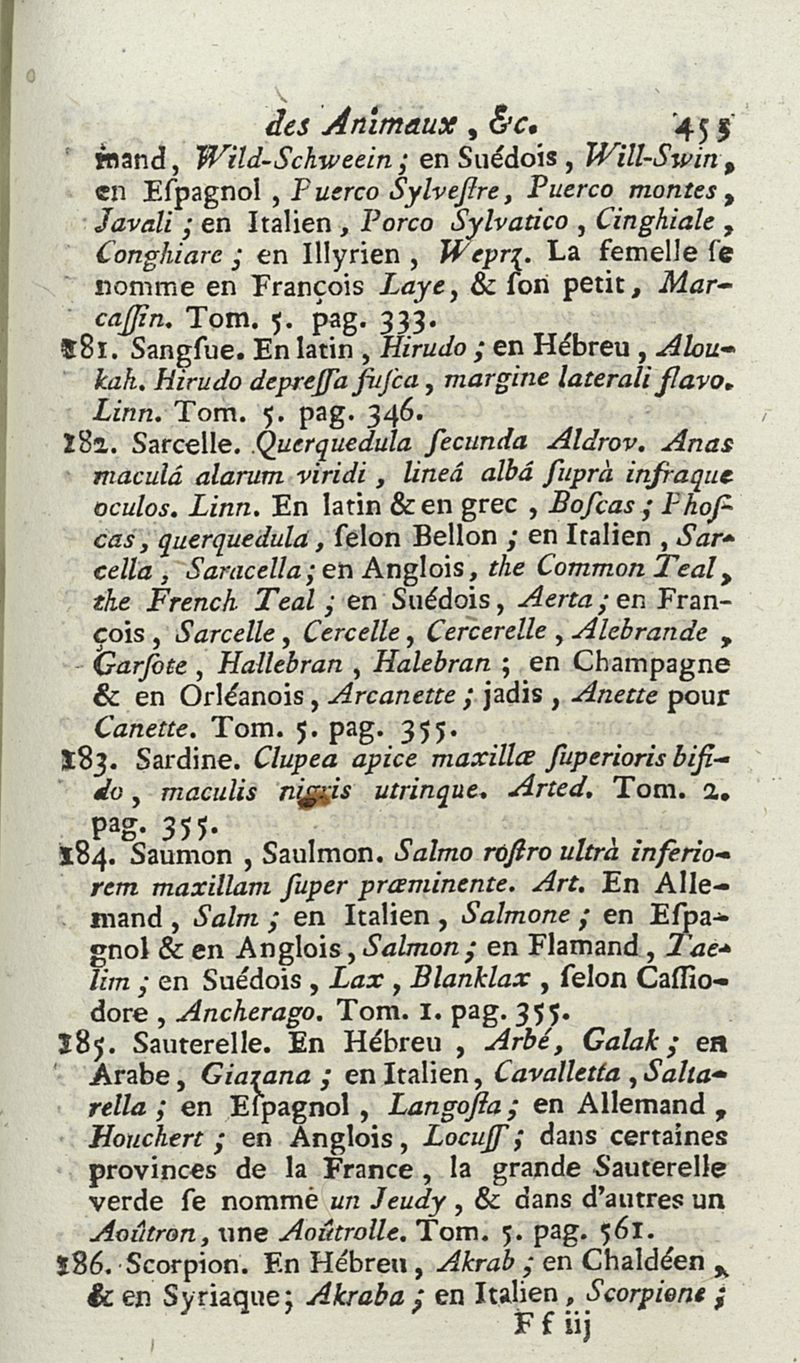 des Animaux, &c. 455
mand, Wild-Schweein ; en Suédois, Will-Swin,
en Eſpagnol, Puerco Sylveſtre, Puerco montes,
Javali ; en Italien, Porco Sylvatico, Cinghiale,
Conghiare ; en Illyrien, Weprz. La femelle ſe
nomme en François Laye, & ſon petit, Mar-
caſſin. Tom. 5. pag. 333.
181. Sangſue. En latin, Hirudo ; en Hébreu, Alou-
kah. Hirudo depreſſa fuſca, margine laterali flavo.
Linn. Tom. 5. pag. 346.
182. Sarcelle. Querquedula ſecunda Aldrov. Anas
maculá alarum viridi, lineá albá ſuprà infraque
oculos. Linn. En latin & en grec, Boſcas ; Phoſ-
cas, querquedula, ſelon Bellon ; en Italien, Sar-
cella, Saracella ; en Anglois, the Common Teal,
the French Teal ; en Suédois, Aerta ; en Fran-
çois, Sarcelle, Cercelle, Cercerelle, Alebrande,
Garſote, Hallebran, Halebran ; en Champagne
& en Orléanois, Arcanette ; jadis, Anette pour
Canette. Tom. 5. pag. 355.
183. Sardine. Clupea apice maxillæ ſuperioris bifi-
do, maculis nigris utrinque. Arted. Tom. 2.
pag. 355.
184. Saumon, Saulmon. Salmo roſtro ultrà inferio-
rem maxillam ſuper præminente. Art. En Alle-
mand, Salm ; en Italien, Salmone ; en Eſpa-
gnol & en Anglois, Salmon ; en Flamand, Tae-
lim ; en Suédois, Lax, Blanklax, ſelon Caſſio-
dore, Ancherago. Tom. 1. pag. 355.
185. Sauterelle. En Hébreu, Arbé, Galak ; en
Arabe, Giazana ; en Italien, Cavalletta, Salta-
rella ; en Eſpagnol, Langoſta ; en Allemand,
Houchert ; en Anglois, Locuſſ ; dans certaines
provinces de la France, la grande Sauterelle
verde ſe nommé un Jeudy, & dans d'autres un
Aoûtron, une Aoûtrolle. Tom. 5. pag. 561.
186. Scorpion. En Hébreu, Akrab ; en Chaldéen,
& en Syriaque ; Akraba ; en Italien, Scorpione ;
F f iij